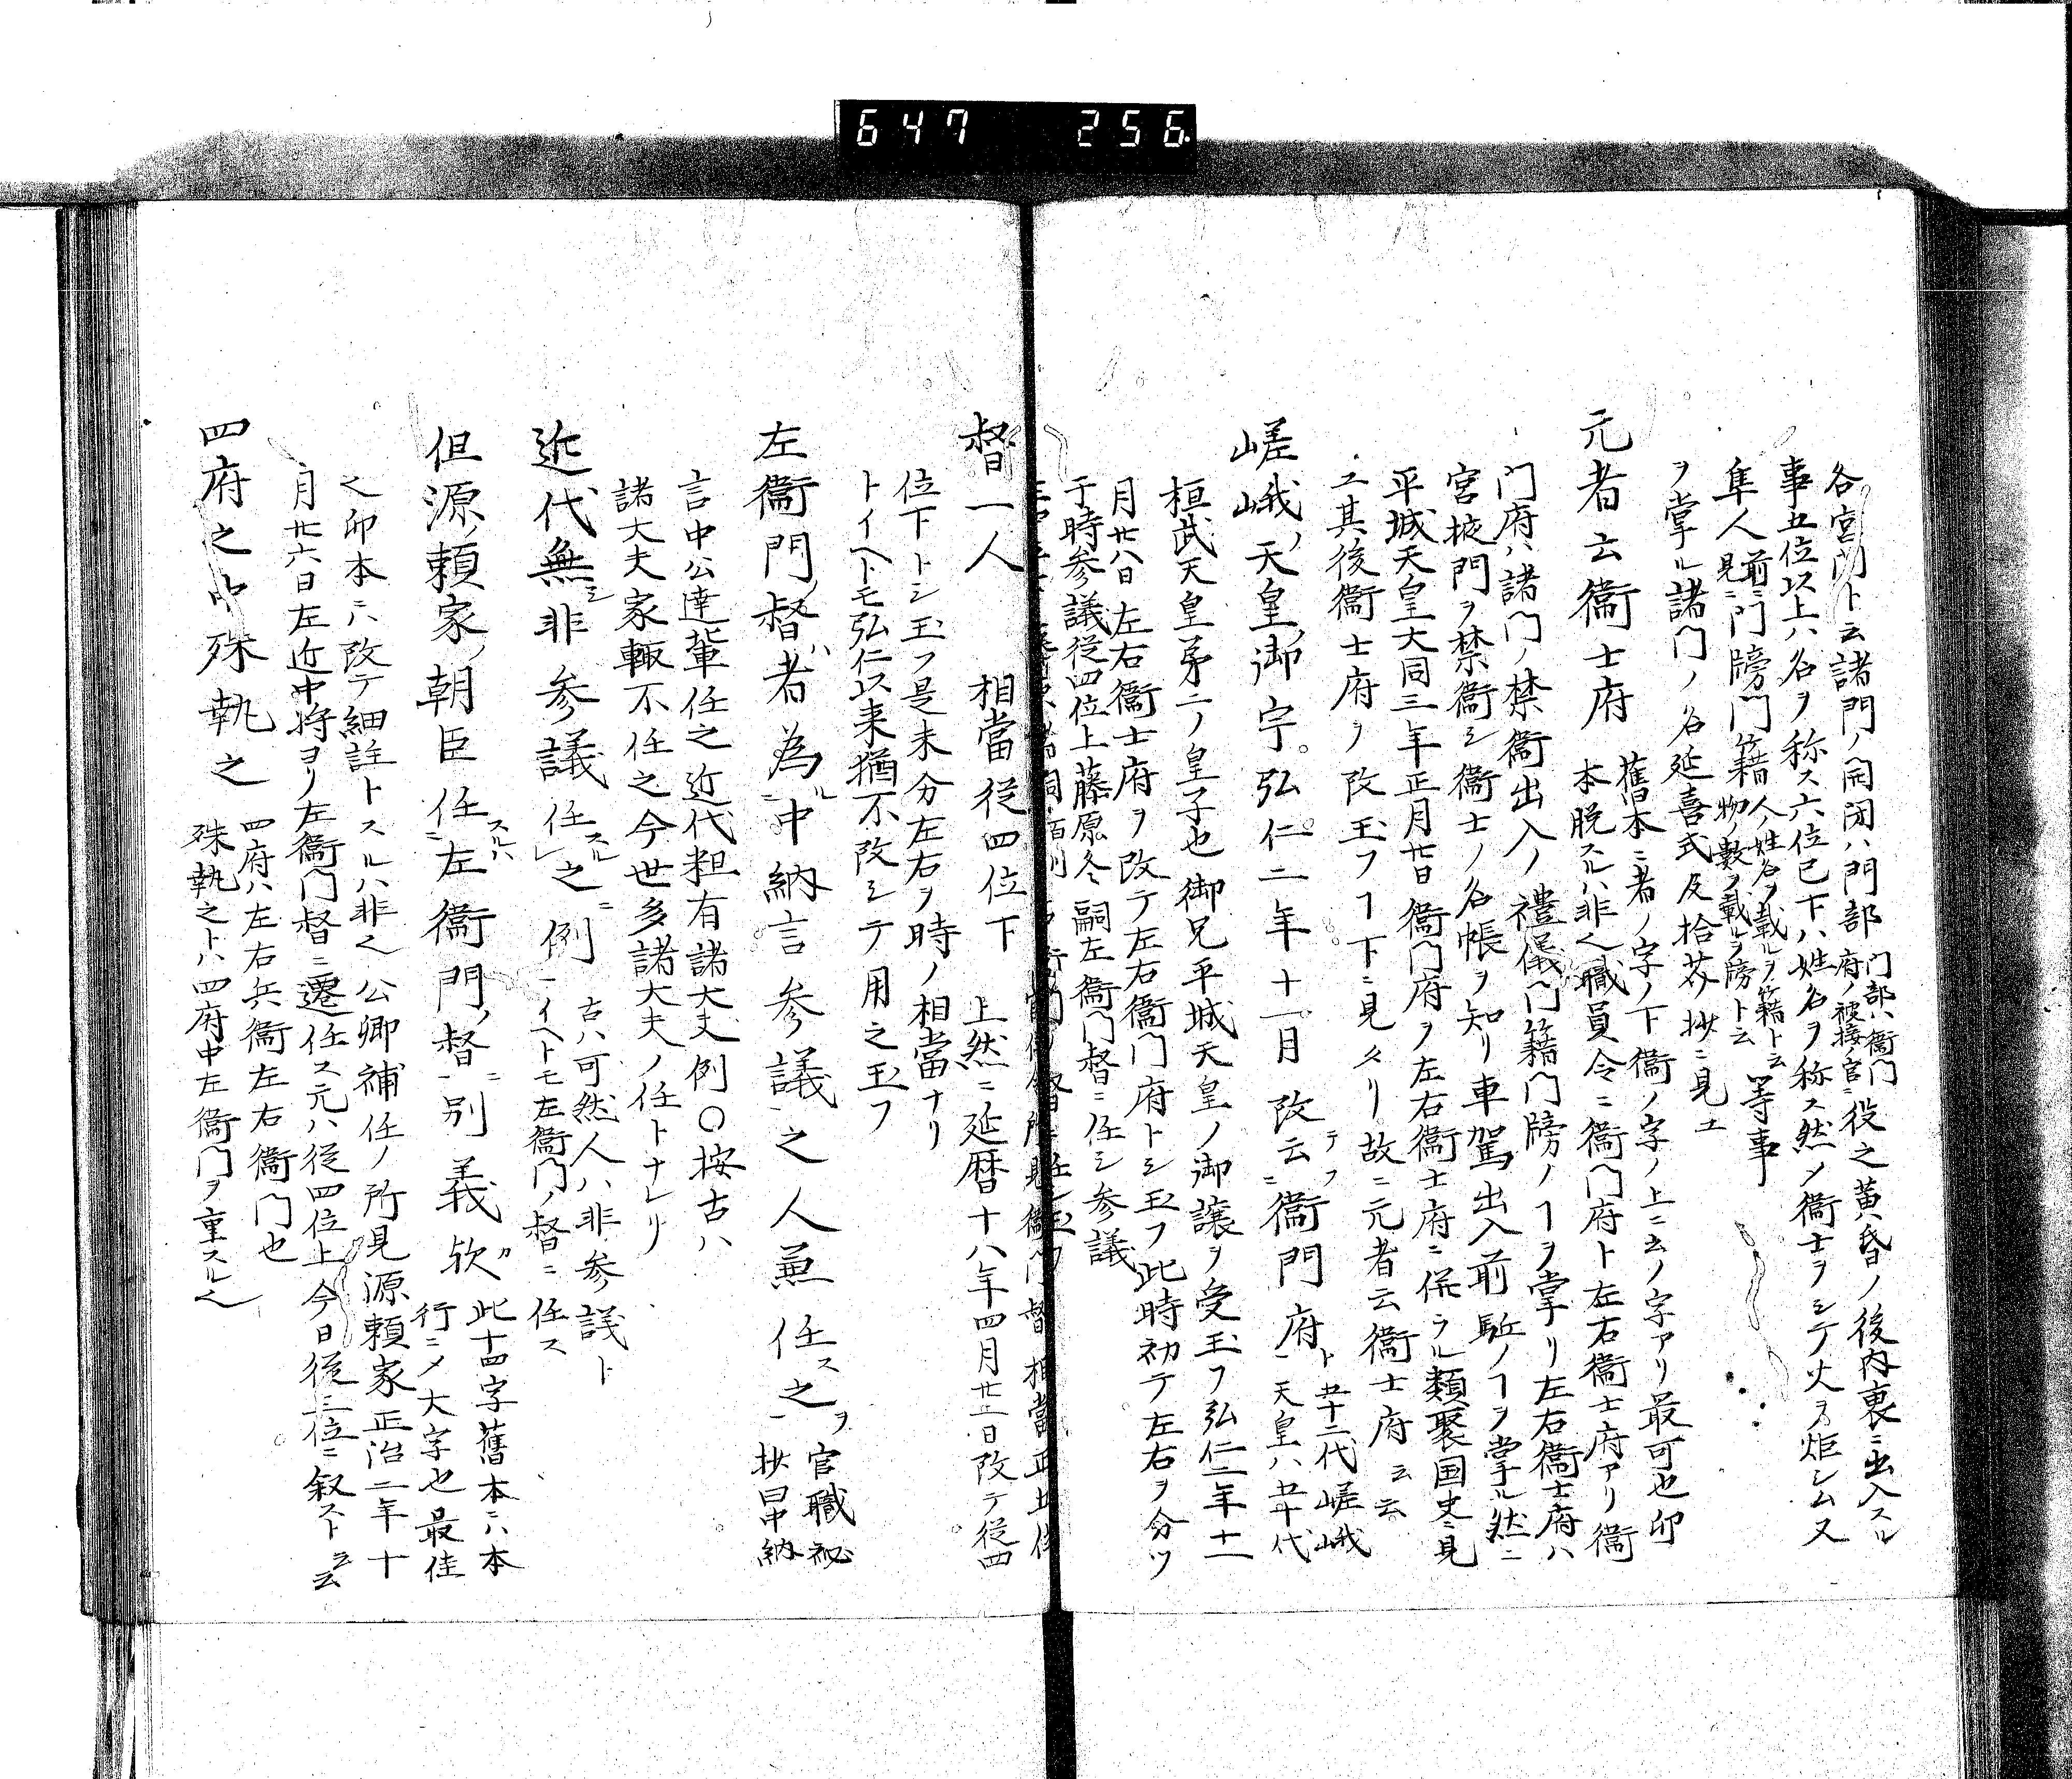 647 256
各宮門ト云諸門ノ開閉ハ門部門部ハ衞門府ノ被接ノ官ニ役之黄昏ノ後内裏ニ出入スル
事五位以上ハ名ヲ称ス六位已下ハ姓名ヲ称ス然メ衞士ヲシテ火ヲ炬シム又
隼人前ニ見ニ門牓門籍人ノ姓名ヲ載ルヲ籍ト云物ノ數ヲ載ルヲ牓ト云等事
ヲ掌ル諸門ノ名延喜式及拾芥抄ニ見エ
元者云衞士府
舊本ニ者ノ字ノ下衞ノ字ノ上ニ云ノ字アリ最可也印
本脱スルハ非也職員令ニ衞門府ト左右衞士府アリ衞
門府ハ諸門ノ禁衞出入ノ禮儀門籍門牓ノヿヲ掌リ左右衞士府ハ
宮掖門ヲ禁衞シ衞士ノ名帳ヲ知リ車駕出入前駈ノヿヲ掌ル然ニ
平城天皇大同三年正月廿日衞門府ヲ左右衞士府ニ併ラル類聚国史ニ見
エ其後衞士府ヲ改玉フヿ下ニ見タリ故ニ元者云衞士府云云
嵯峨ノ天皇ノ御宇弘仁二年十一月改テ云フニ衞門府ト
五十二代嵯峨
天皇ハ五十代
桓武天皇第二ノ皇子也御兄平城天皇ノ御譲ヲ受玉フ弘仁二年十一
月廿八日左右衞士府ヲ改テ左右衞門府トシ玉フ此時初テ左右ヲ分ツ
于時参議従四位上藤原冬嗣左衞門督ニ任シ参議
督一人 相當従四位下
相當正五位
上然ニ延暦十八年四月廿日改テ従四
位下トシ玉フ是未分左右ヲ時ノ相當ナリ
トイヘトモ弘仁以来猶不改シテ用之玉フ
左衞門ノ督ハ者為ル中納言参議之人兼任ス之ヲ
官職祕
抄曰中納
言中公達輩任之近代粗有諸大夫例〇按古ハ
諸大夫家輙不任之今世多諸大夫ノ任トナレリ
近代無シ非参議任スル之例
古ハ可然人ハ非参議ト
イヘトモ左衞門ノ督ニ任ス
但源ノ頼家ノ朝臣任スルハ左衞門ノ督ニ別義歟
此十四字舊本ニハ本
行ニメ大字也最佳
之印本ニハ改テ細註トスルハ非也公卿補任ノ所見源頼家正治二年十
月廿六日左近中将ヨリ左衞門督ニ遷任ス元ハ従四位上今日従三位ニ叙スト云云
四府之中殊執之
四府ハ左右兵衞左右衞門也
殊執之トハ四府中左衞門ヲ重スル也